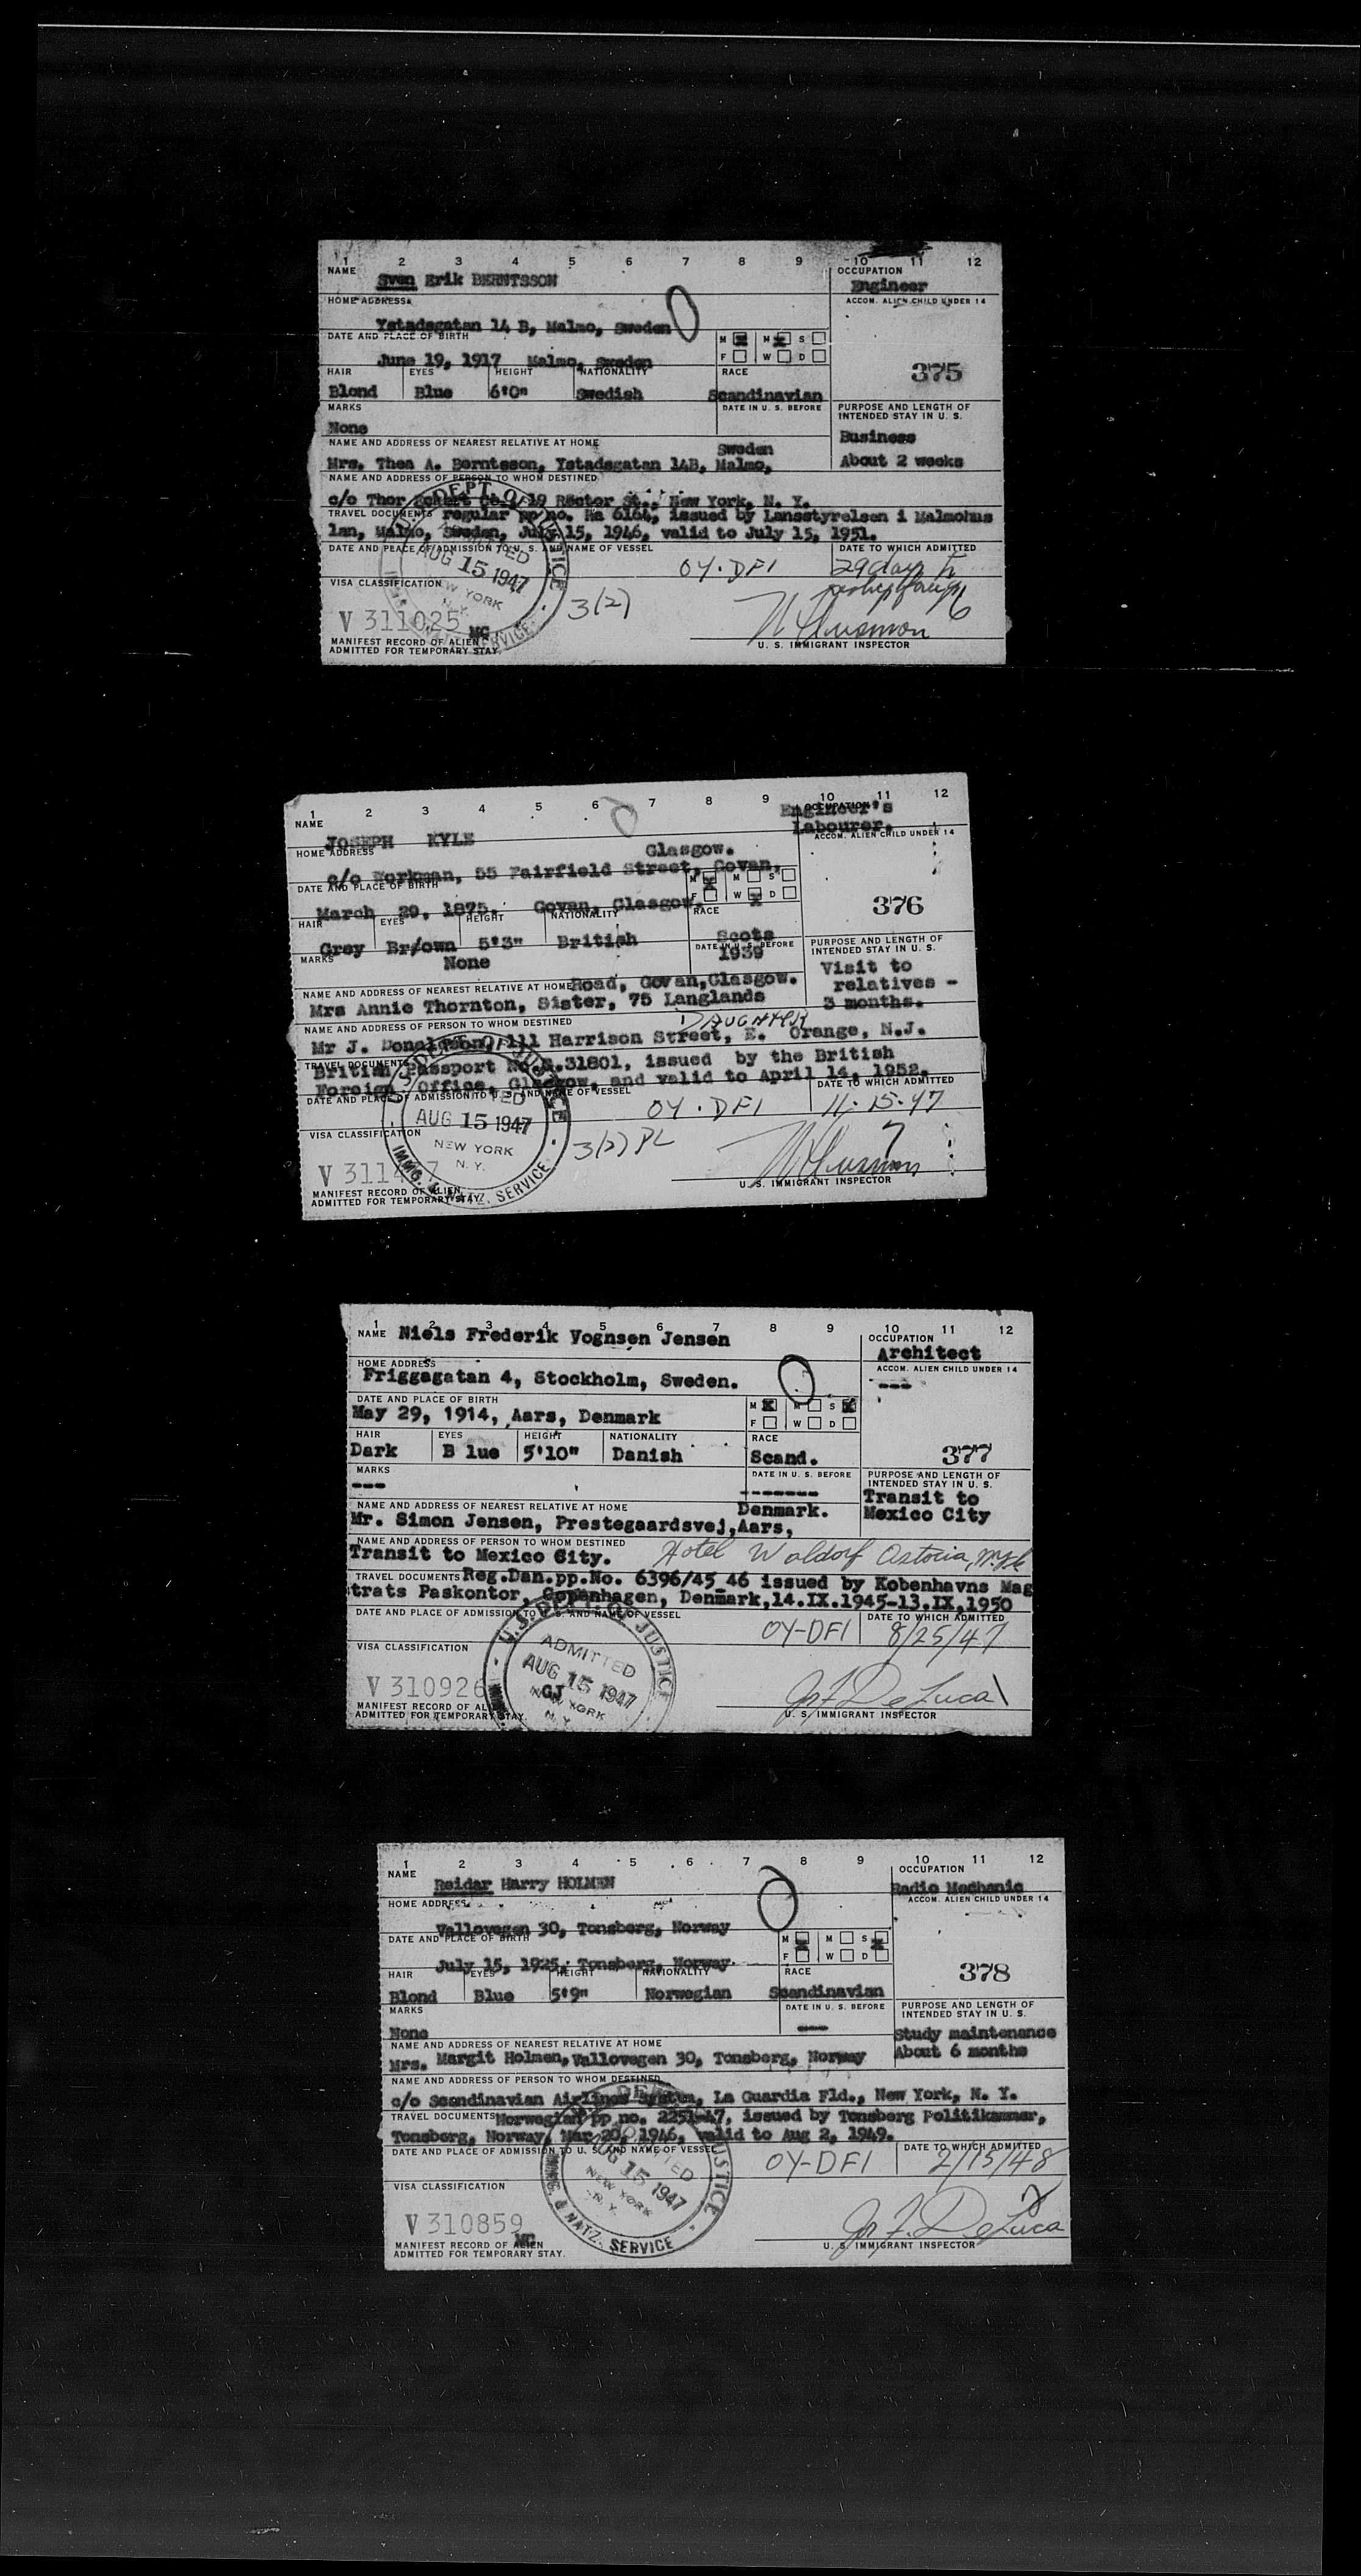 1 2 3 4 5 6 7 8 9 10 11 12
NAME OCCUPATION
Sven Erik BERNTSSON Engineer
HOME ADDRESS ACCOM. ALIEN CHILD UNDER 14
Ystadsgatan 14 B, Malmo, Sweden
DATE AND PLACE OF BIRTH M M S
June 19, 1917 Malmo, Sweden F W D
375
HAIR EYES HEIGHT NATIONALITY RACE
Blond Blue 6'0" Swedish Scandinavian
MARKS DATE IN U. S. BEFORE PURPOSE AND LENGTH OF INTENDED STAY IN U. S.
None Business
NAME AND ADDRESS OF NEAREST RELATIVE AT HOME Sweden
Mrs. Thea A. Berntsson, Ystadsgatan 14B, Malmo, About 2 weeks
NAME AND ADDRESS OF PERSON TO WHOM DESTINED
c/o Thor Eckert Co., 19 Rector St., New York, N. Y.
TRAVEL DOCUMENTS regular pp no. Ma 6164, issued by Lansstyrelsen i Malmohus
lan, Malmo, Sweden, July 15, 1946, valid to July 15, 1951.
DATE AND PLACE OF ADMISSION TO U. S. AND NAME OF VESSEL DATE TO WHICH ADMITTED
OY-DFI 29 days
DEPT. OF JUSTICE
ADMITTED
AUG 15 1947
NEW YORK
N. Y.
SERVICE
VISA CLASSIFICATION
3(2) 6
V 311025 MG
MANIFEST RECORD OF ALIEN
ADMITTED FOR TEMPORARY STAY
U. S. IMMIGRANT INSPECTOR
1 2 3 4 5 6 7 8 9 10 11 12
NAME OCCUPATION Engineer's
JOSEPH KYLE Labourer.
HOME ADDRESS Glasgow. ACCOM. ALIEN CHILD UNDER 14
c/o Workman, 55 Fairfield Street, Govan,
DATE AND PLACE OF BIRTH M M S
March 29, 1875. Govan, Glasgow. F W D
376
HAIR EYES HEIGHT NATIONALITY RACE
Grey Br/own 5'3" British Scots
MARKS DATE IN U. S. BEFORE PURPOSE AND LENGTH OF INTENDED STAY IN U. S.
None 1939 Visit to
NAME AND ADDRESS OF NEAREST RELATIVE AT HOME Road, Govan,Glasgow. relatives -
Mrs Annie Thornton, Sister, 75 Langlands 3 months.
NAME AND ADDRESS OF PERSON TO WHOM DESTINED DAUGHTER
Mr J. Donaldson, 111 Harrison Street, E. Orange, N.J.
TRAVEL DOCUMENTS British Passport 31801, issued by the British
Foreign Office, Glasgow, and valid to April 14, 1952.
DATE AND PLACE OF ADMISSION TO U. S. AND NAME OF VESSEL DATE TO WHICH ADMITTED
OY-DFI 11-15-47
DEPT. OF JUSTICE
AUG 15 1947
NEW YORK
N. Y.
IMMG. & NATZ. SERVICE
VISA CLASSIFICATION
3(2) PL 7
V 311
MANIFEST RECORD OF ALIEN
ADMITTED FOR TEMPORARY STAY
U. S. IMMIGRANT INSPECTOR
1 2 3 4 5 6 7 8 9 10 11 12
NAME Niels Frederik Vognsen Jensen OCCUPATION
Architect
HOME ADDRESS ACCOM. ALIEN CHILD UNDER 14
Friggagatan 4, Stockholm, Sweden. ---
DATE AND PLACE OF BIRTH M M S
May 29, 1914, Aars, Denmark F W D
HAIR EYES HEIGHT NATIONALITY RACE 377
Dark B lue 5'10" Danish Scand.
MARKS DATE IN U. S. BEFORE PURPOSE AND LENGTH OF INTENDED STAY IN U. S.
--- ------- Transit to
NAME AND ADDRESS OF NEAREST RELATIVE AT HOME Denmark. Mexico City
Mr. Simon Jensen, Prestegaardsvej,Aars,
NAME AND ADDRESS OF PERSON TO WHOM DESTINED
Transit to Mexico City. Hotel Waldorf Astoria,
TRAVEL DOCUMENTS Reg.Dan.pp.No. 6396/45_46 issued by Kobenhavns Mag
strats Paskontor, Copenhagen, Denmark,14.IX.1945-13.IX,1950
DATE AND PLACE OF ADMISSION TO U. S. AND NAME OF VESSEL DATE TO WHICH ADMITTED
OY-DFI 8/25/47
U.S. DEPT. OF JUSTICE
ADMITTED
AUG 15 1947
NEW YORK
N. Y.
VISA CLASSIFICATION
V 310926 GJ
MANIFEST RECORD OF ALIEN
ADMITTED FOR TEMPORARY STAY.
De Luca
U. S. IMMIGRANT INSPECTOR
1 2 3 4 5 6 7 8 9 10 11 12
NAME OCCUPATION
Reidar Harry HOLMEN Radio Mechanic
HOME ADDRESS ACCOM. ALIEN CHILD UNDER 14
Vallovegen 30, Tonsberg, Norway
DATE AND PLACE OF BIRTH M M S
July 15, 1925, Tonsberg, Norway. F W D
HAIR EYES HEIGHT NATIONALITY RACE 378
Blond Blue 5'9" Norwegian Scandinavian
MARKS DATE IN U. S. BEFORE PURPOSE AND LENGTH OF INTENDED STAY IN U. S.
None --- Study maintenance
NAME AND ADDRESS OF NEAREST RELATIVE AT HOME About 6 months
Mrs. Margit Holmen, Vallovegen 30, Tonsberg, Norway
NAME AND ADDRESS OF PERSON TO WHOM DESTINED
c/o Scandinavian Airlines System, La Guardia Fld., New York, N. Y.
TRAVEL DOCUMENTS Norwegian pp no. issued by Tonsberg Politikammer,
Tonsberg, Norway, Mar 20, 1946, valid to Aug 2, 1949.
DATE AND PLACE OF ADMISSION TO U. S. AND NAME OF VESSEL DATE TO WHICH ADMITTED
OY-DFI 2/15/48
AUG 15 1947
NEW YORK
N. Y.
IMMG. & NATZ. SERVICE
VISA CLASSIFICATION
V 310859 MG
MANIFEST RECORD OF ALIEN
ADMITTED FOR TEMPORARY STAY.
De Luca
U. S. IMMIGRANT INSPECTOR